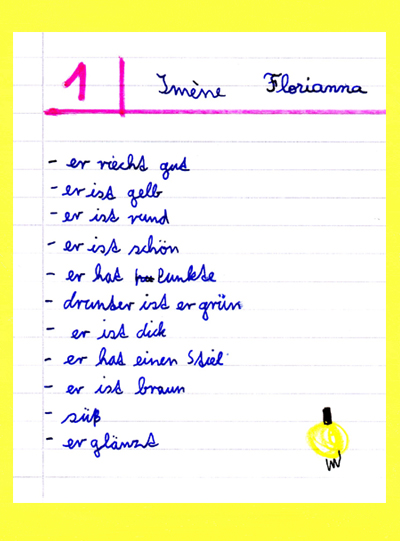 1 Imène Florianna
- er riecht gut
- er ist gelb
- er ist rund
- er ist schön
- er hat Punkte
- drunter ist er grün
- er ist dick
- er hat einen Stiel
- er ist braun
- süß
- er glänzt